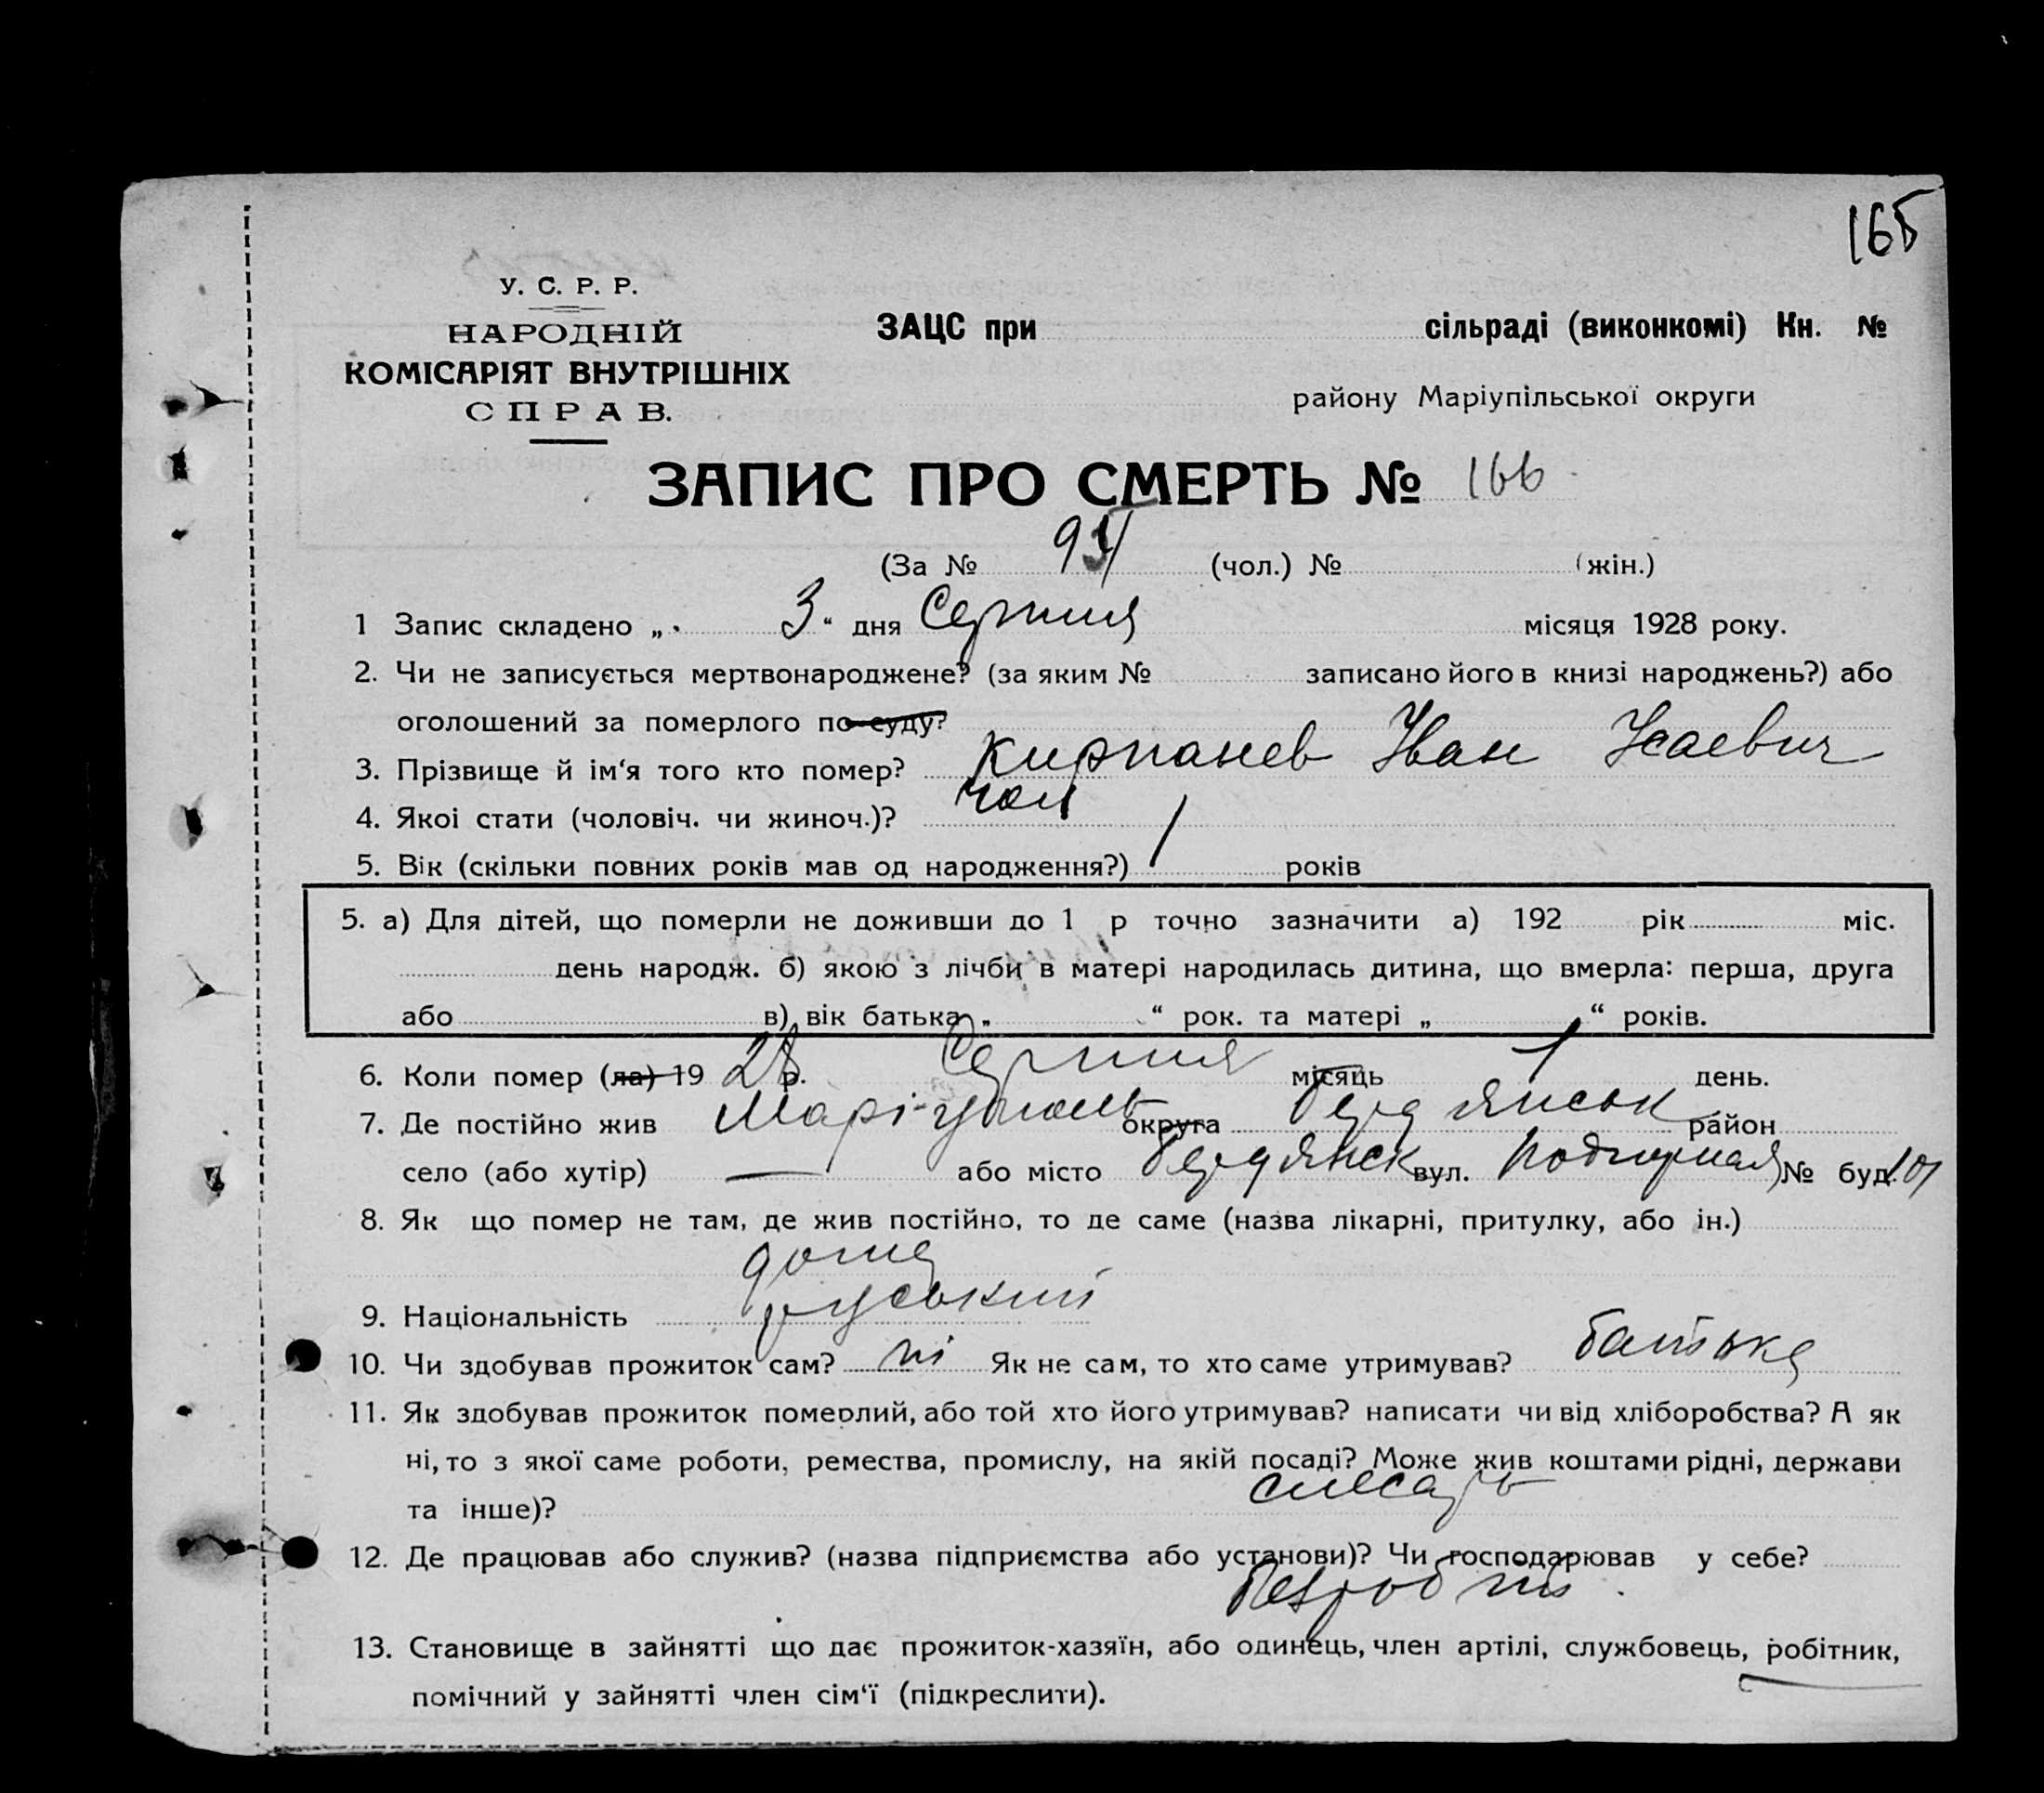 165
У. С. Р. Р.
НАРОДНІЙ
КОМІСАРІЯТ ВНУТРІШНІХ
СПРАВ.
ЗАЦС при сільраді (виконкомі) Кн. №
району Маріупільської округи
ЗАПИС ПРО СМЕРТЬ № 166
(За № 94 (чол.) № (жін.)
1 Запис складено „ 3 “ дня Серпня місяця 1928 року.
2. Чи не записується мертвонароджене? (за яким № записано його в книзі народжень?) або
оголошений за померлого по суду?
3. Прізвище й ім‘я того кто помер? Кирпанев Иван Исаевич
4. Якоі стати (чоловіч. чи жиноч.)? чол
5. Вік (скільки повних років мав од народження?) 1 років
5. а) Для дітей, що померли не доживши до 1 р точно зазначити а) 192 рік міс.
день народж. б) якою з лічби в матері народилась дитина, що вмерла: перша, друга
або в) вік батька „ “ рок. та матері „ “ років.
6. Коли помер (ла) 19 28 р. Серпня місяць 1 день.
7. Де постійно жив Марі-уполь округа Бердянськ район
село (або хутір) — або місто Бердянск вул. Подгорная № буд. 101
8. Як що помер не там, де жив постійно, то де саме (назва лікарні, притулку, або ін.)
дома
9. Національність руський
10. Чи здобував прожиток сам? ні Як не сам, то хто саме утримував? батько
11. Як здобував прожиток померлий, або той хто його утримував? написати чи від хліборобства? А як
ні, то з якої саме роботи, ремества, промислу, на якій посаді? Може жив коштами рідні, держави
та інше)? слесарь
12. Де працював або служив? (назва підприємства або установи)? Чи господарював у себе?
безробтн
13. Становище в зайнятті що дає прожиток-хазяїн, або одинець, член артілі, службовець, робітник,
помічний у зайнятті член сім‘ї (підкреслити).